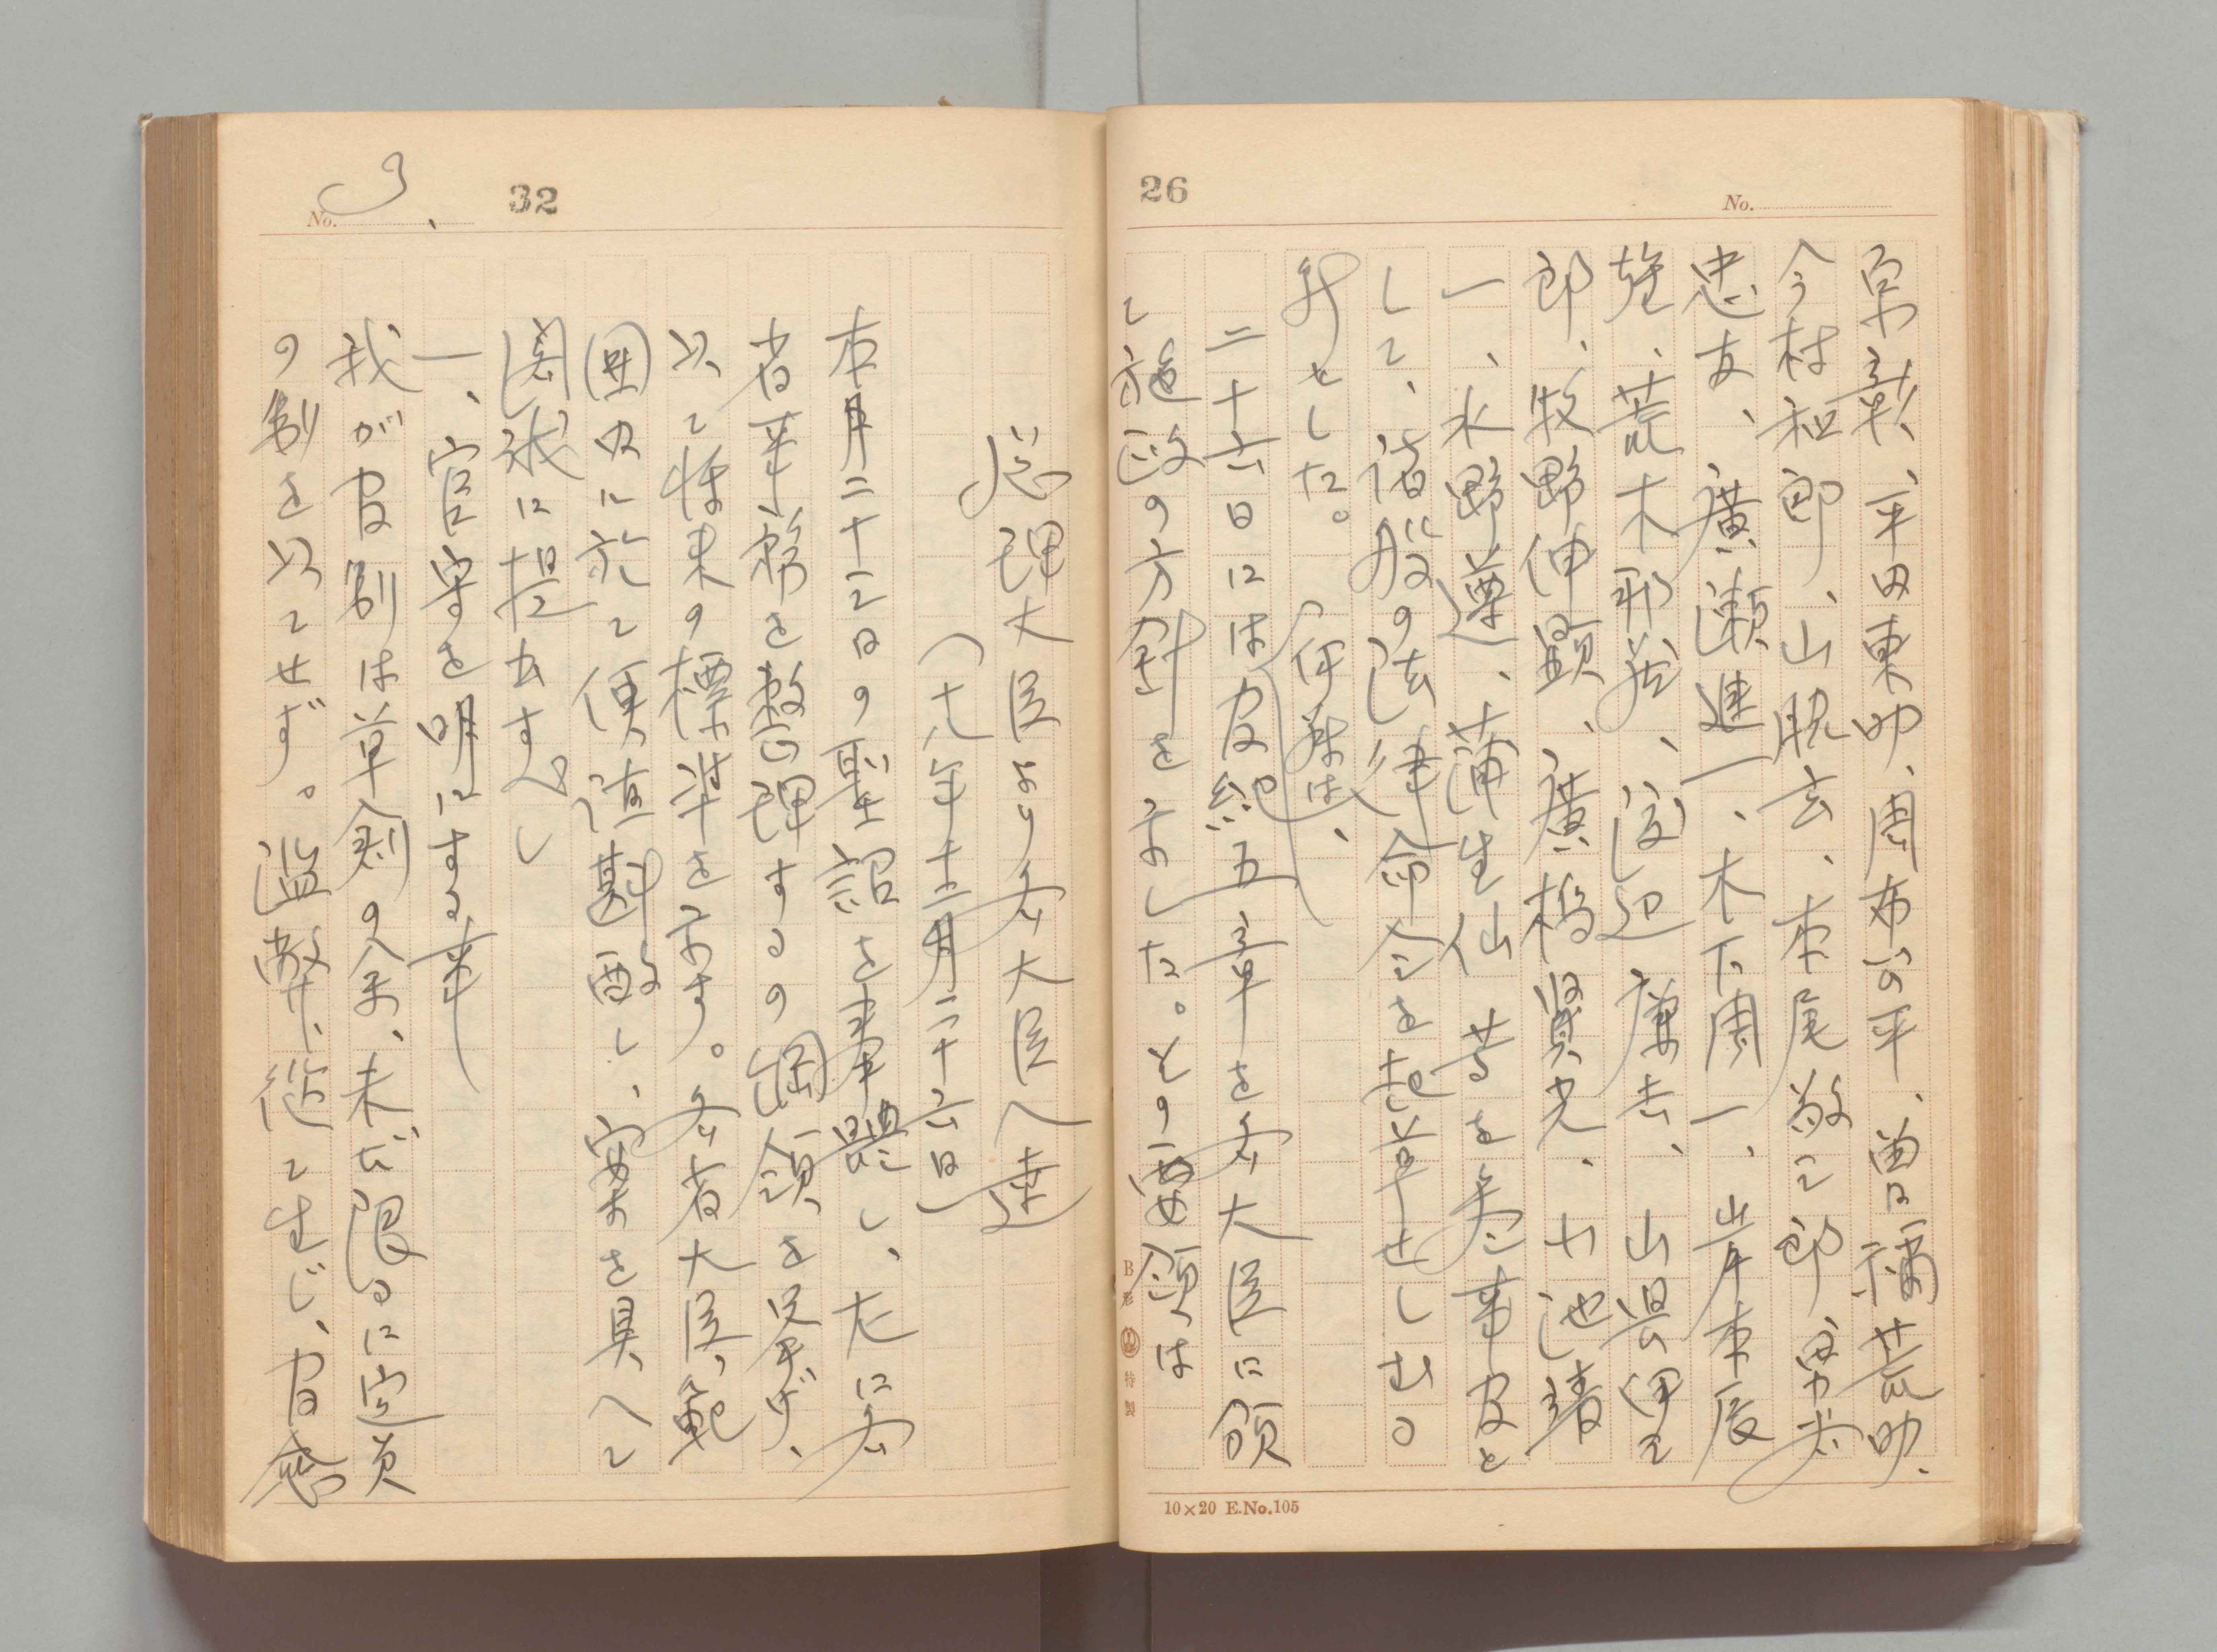 26
No.
原彰、平田東助、周布公平、曽禰荒助、
今村和郎、山脇玄、本尾敬三郎、
忠友、廣瀬進一、木下周一、岸本辰
雄、荒木邦、渡辺廉吉、山県伊三
郎、牧野伸顕、廣橋賢光、小池靖
一、水野遵、蒲生仙 等を参事官と
して、諸般の法律命令を起草せしむる
とした。 (伊藤は、
二十六日には官紀五章を各大臣に頒
て施政の方針を示した。その要領は
B形 特製
10×20 E.No.105
32
No. 3、
総理大臣より各大臣へ達
(十八年十二月二十六日)
本月二十三日の聖詔を奉體し、左に各
省事務を整理するの綱領を挙げ、
以て将来の標準を示す。各省大臣、範
囲内に於て便宜斟酌し、案を具へて
閣議に提出すべし
一、官守を明にする事
我が官制は草創の余、未だ限るに定員
の制を以てせず。濫弊、従て生じ、官